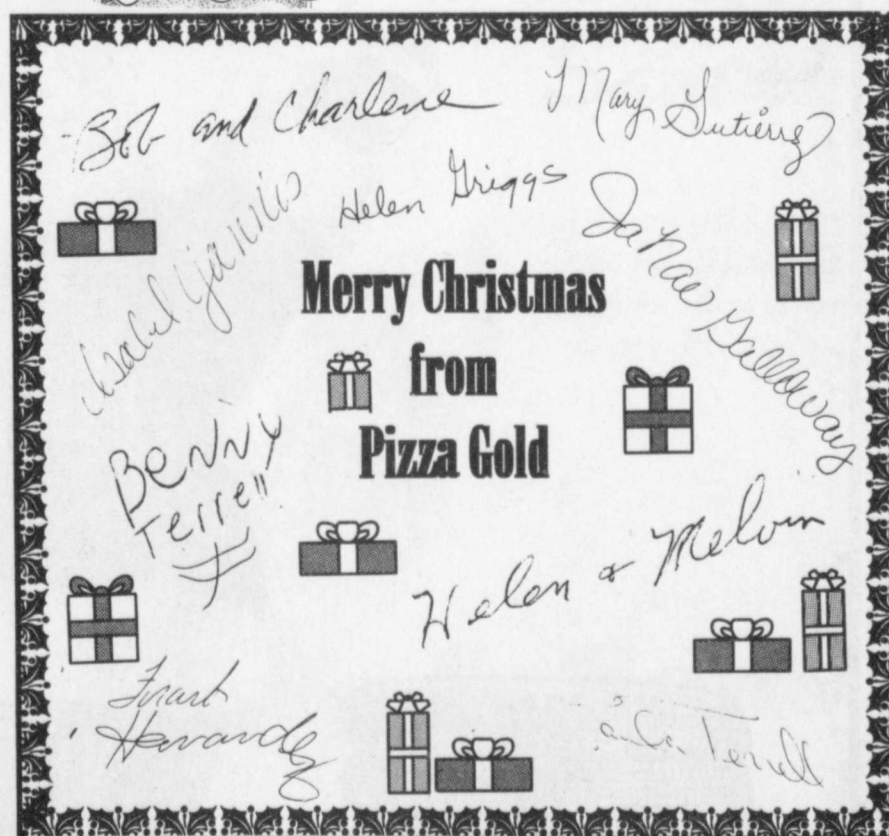 Bob and Charlene
Mary Gutierrez
Helen Griggs
JaNae Galloway
Isabel
Merry Christmas
from
Pizza Gold
Benny
Terrell
Helen & Melvin
Frank
Hernandez
Terrell